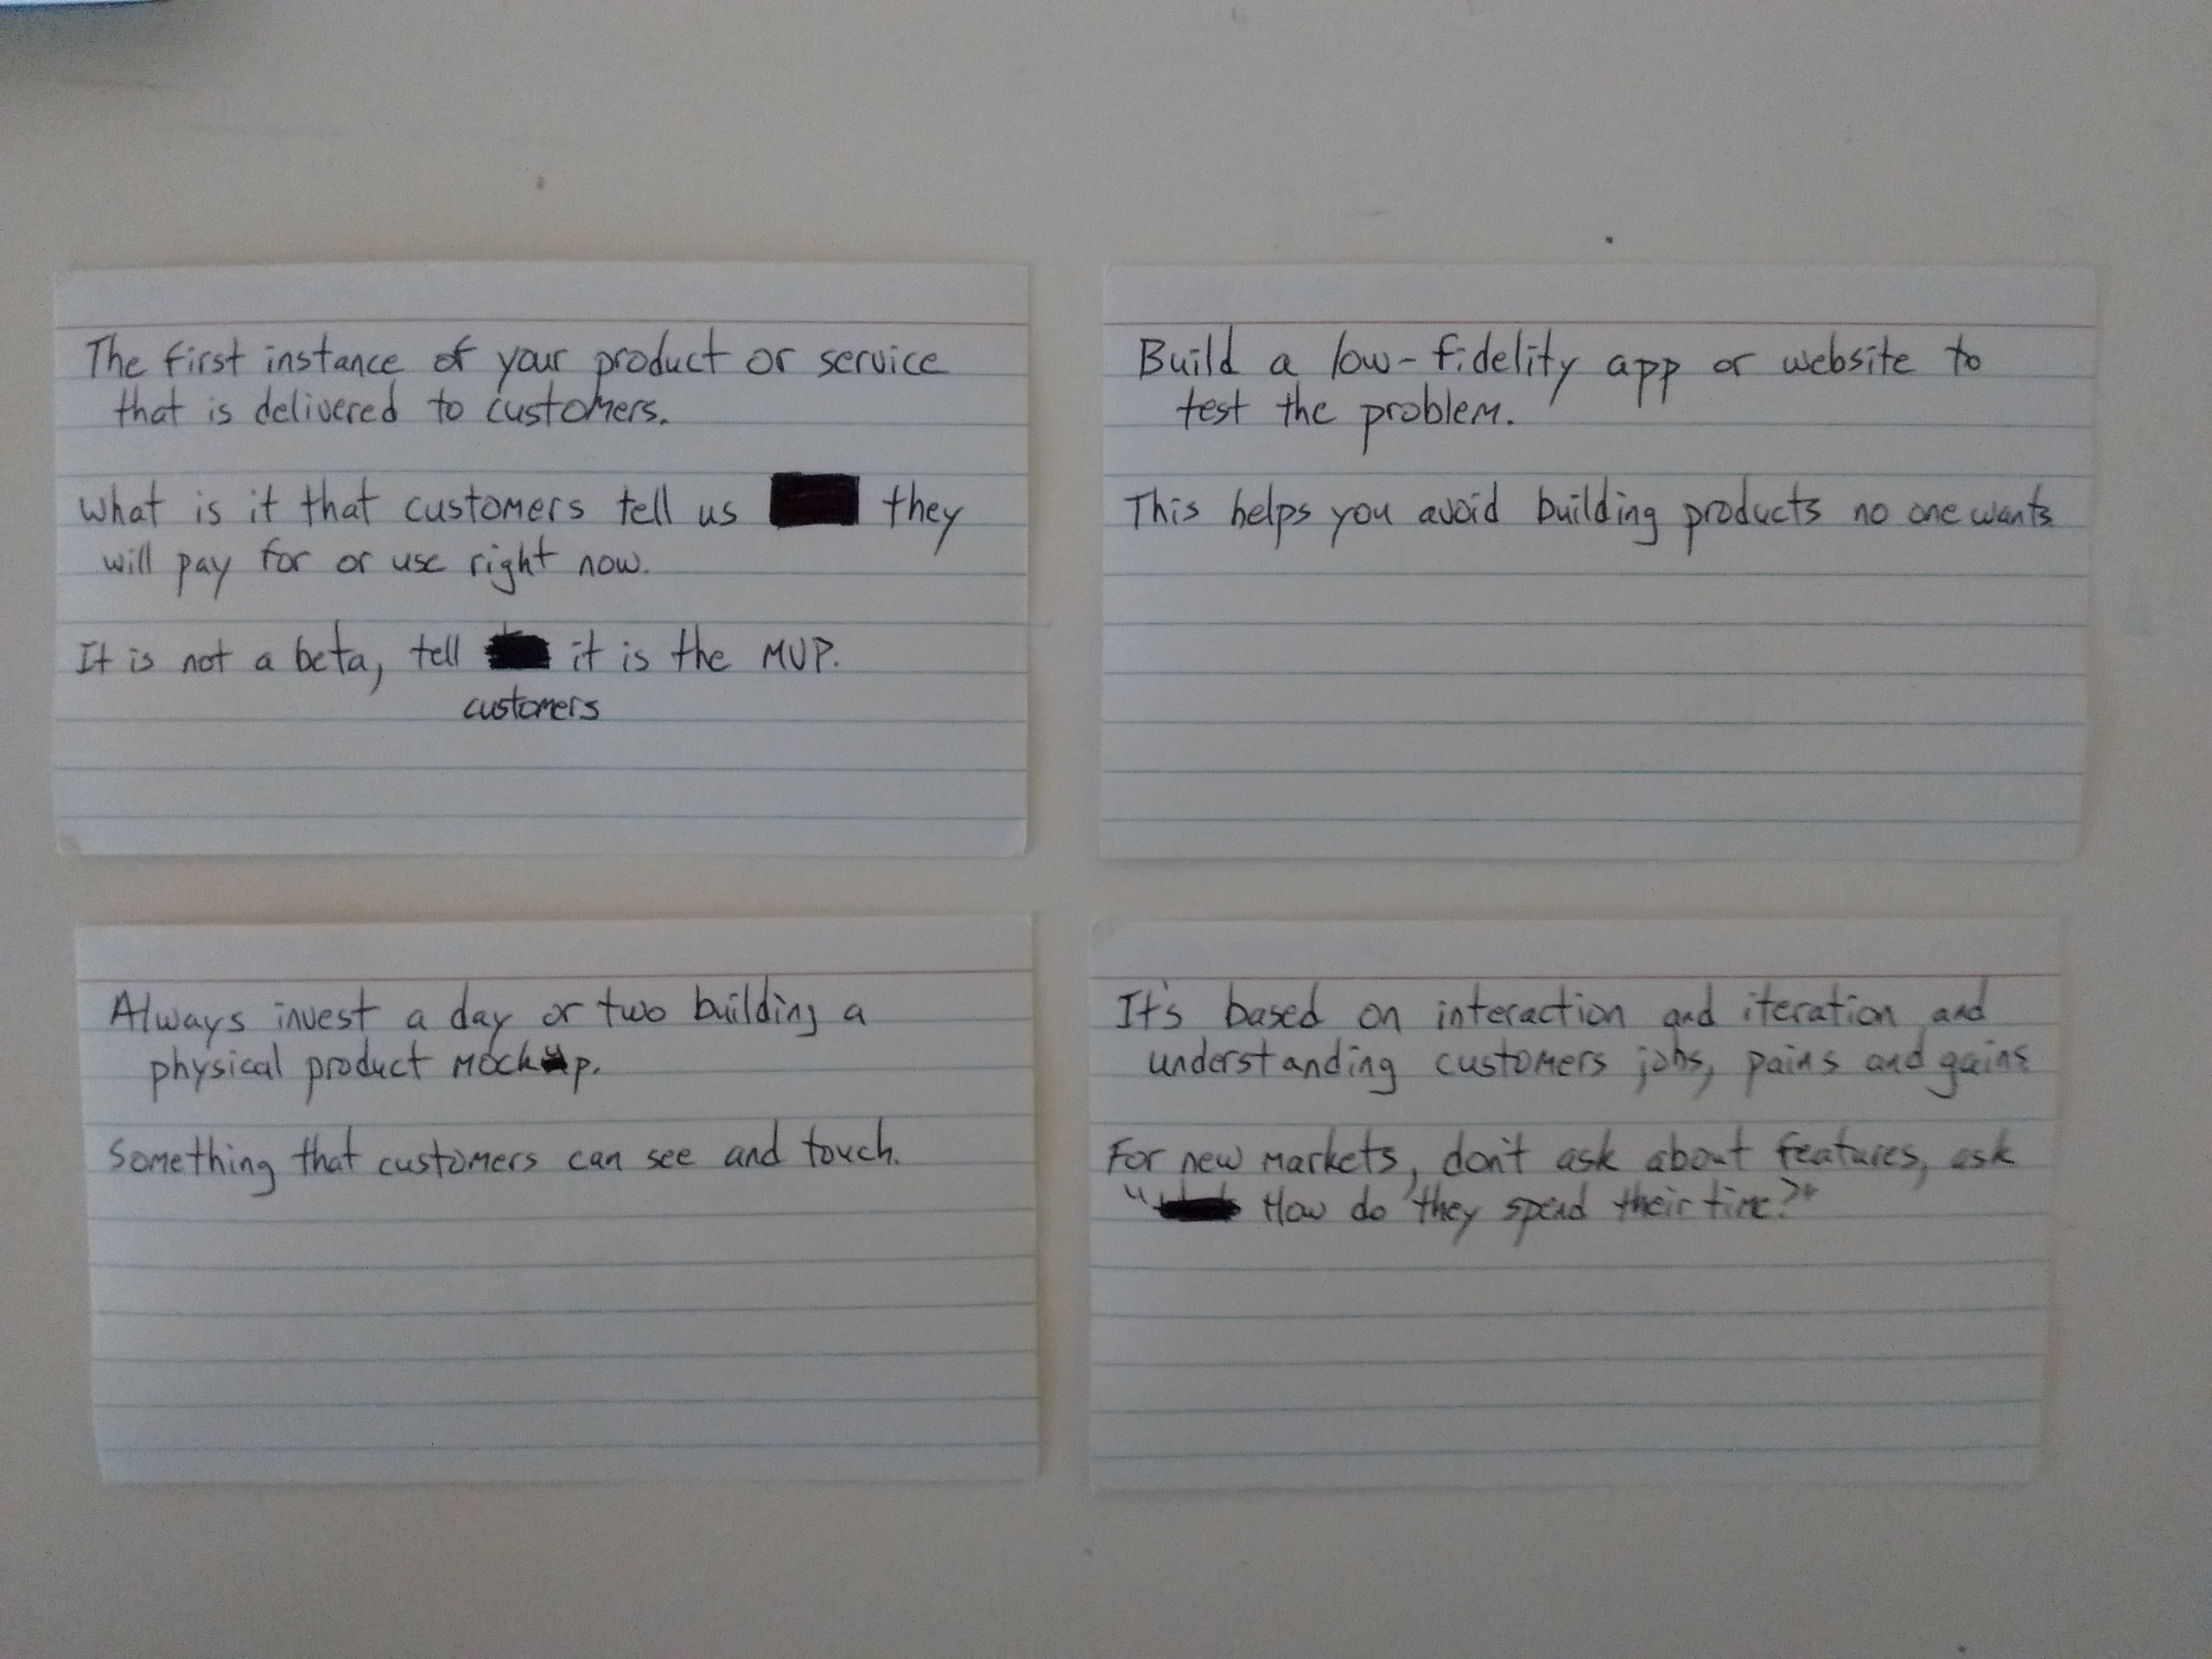 The first instance of your product or service
that is delivered to customers.
what is it that customers tell us they
will pay for or use right now.
It is not a beta, tell it is the MVP.
customers
Build a low-fidelity app or website to
test the problem.
This helps you avoid building products no one wants
Always invest a day or two building a
physical product mockup.
Something that customers can see and touch.
It's based on interaction and iteration and
understanding customers jobs, pains and gains
For new markets, don't ask about features, ask
" How do they spend their time?"